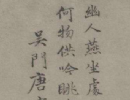 幽人燕坐處
何物供吟眺
吳門唐